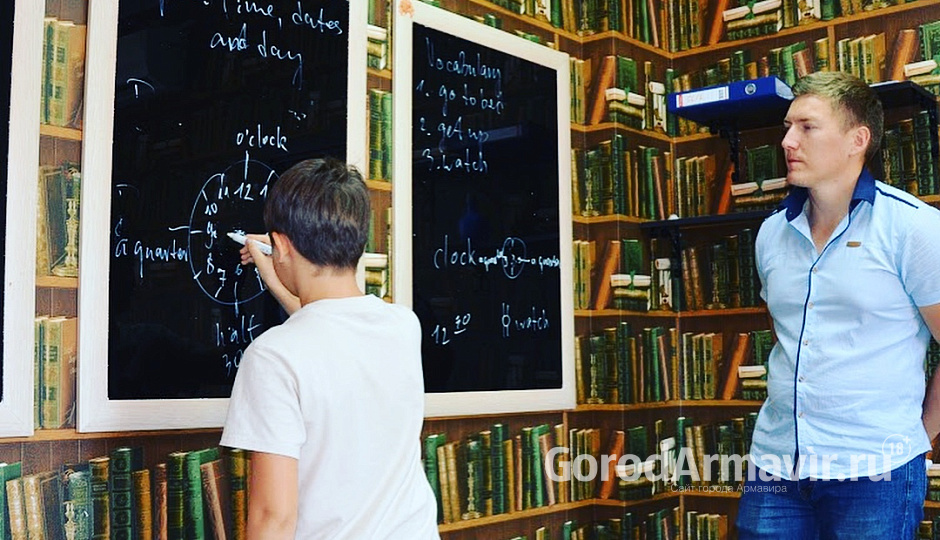 Time, dates
and day
o'clock
11 12 1
10
9
8
7 6
a quarter
half
30
Vocabulary
1. go to bed
2. get up
3. watch
clock a quarter
12 00
watch
GorodArmavir.ru
18+
Сайт города Армавира